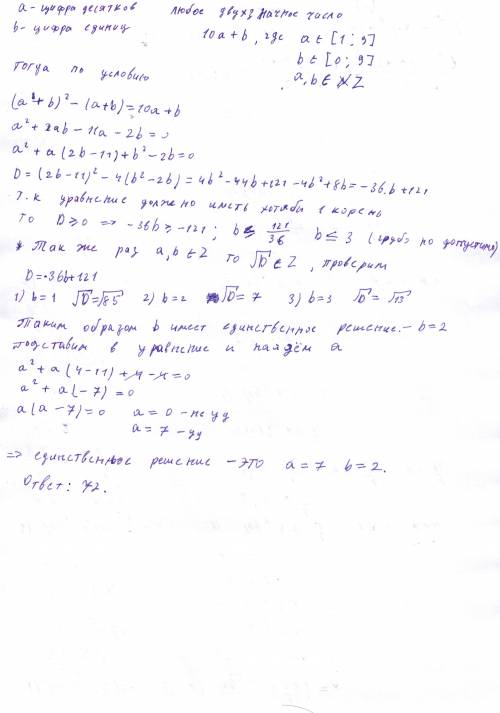 a - цифра десятков любое двухзначное число
b - цифра единиц 10a + b, где a ∈ [1; 9]
b ∈ [0; 9]
a, b ∈ Z
Тогда по условию
(a + b)² - (a+b) = 10a + b
a² + 2ab - 11a - 2b = 0
a² + a(2b - 11) + b² - 2b = 0
D = (2b - 11)² - 4(b² - 2b) = 4b² - 44b + 121 - 4b² + 8b = -36·b + 121
Т.к уравнение должно иметь хотябы 1 корень
то D ≥ 0 => -36b ≥ -121; b ≤ 121/36 b ≤ 3 (грубо но допустимо)
* Так же раз a, b ∈ Z то √D ∈ Z, проверим
D = -36b + 121
1) b = 1 √D = √85 2) b = 2 √D = 7 3) b = 3 √D = √13
Таким образом b имеет единственное решение. - b = 2
подставим в уравнение и найдём a
a² + a(4 - 11) + 4 - 4 = 0
a² + a(-7) = 0
a(a - 7) = 0 a = 0 - не уд
a = 7 - уд
=> единственное решение - это a = 7 b = 2.
Ответ: 72.